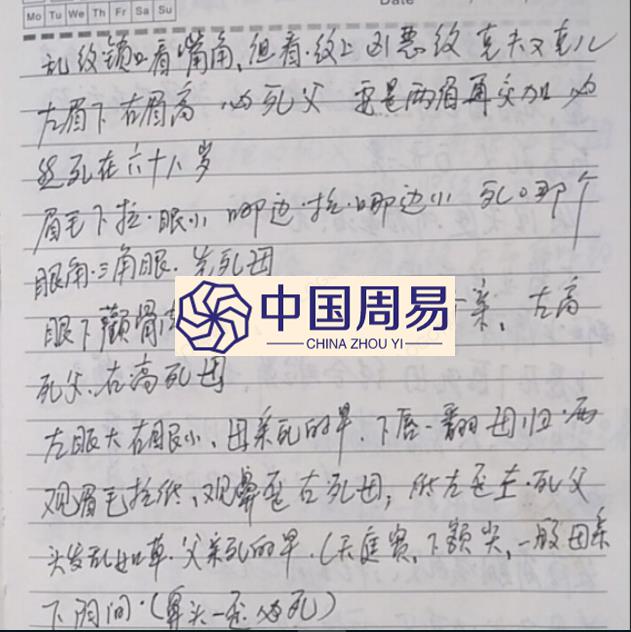 Mo Tu We Th Fr Sa Su
Date
乱纹锁口看嘴角,但看·纹上凶恶纹 克夫又克儿
左眉下右眉高 必死父 要是两眉再交加 必
然死在六十八岁
眉毛下拉·眼小 哪边·拉·哪边小 死。那个
眼角·三角眼·先死母
眼下颧骨
亲,左高
中国周易
CHINA ZHOU YI
死父、右高死母
左眼大右眼小、母亲死的早·下唇一翻母归·西
观眉毛拉低、观鼻歪右死母,
左歪左·死父
头发乱如草·父亲死的早·(天庭宽,下额尖,一般母亲
下阴间·(鼻头一歪必死)